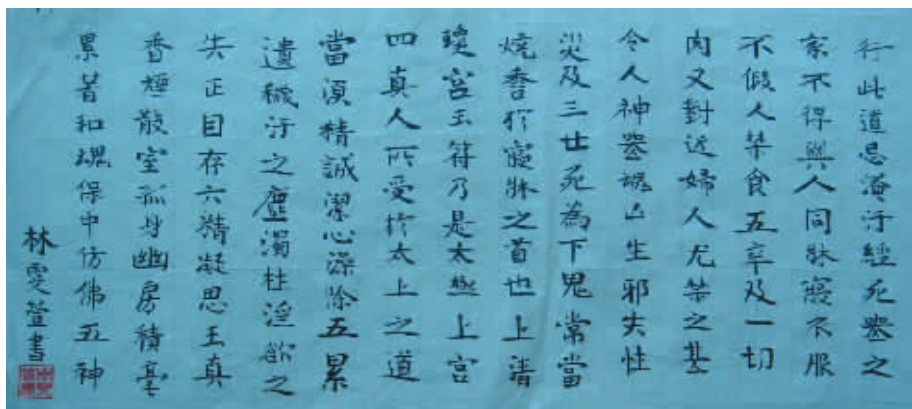 行此道忌淹汙經死喪之
家不得與人同牀寢衣服
不假人禁食五辛及一切
肉又對近婦人尤禁之甚
令人神喪魂亡生邪失性
災及三世死為下鬼常當
燒香於寢牀之首也上清
瓊宮玉符乃是太極上宮
四真人所受於太上之道
當須精誠潔心澡除五累
遺穢汙之塵濁杜淫欲之
失正目存六精凝思玉真
香煙散室孤身幽房積毫
累著和魂保中仿佛五神
林雯萱書